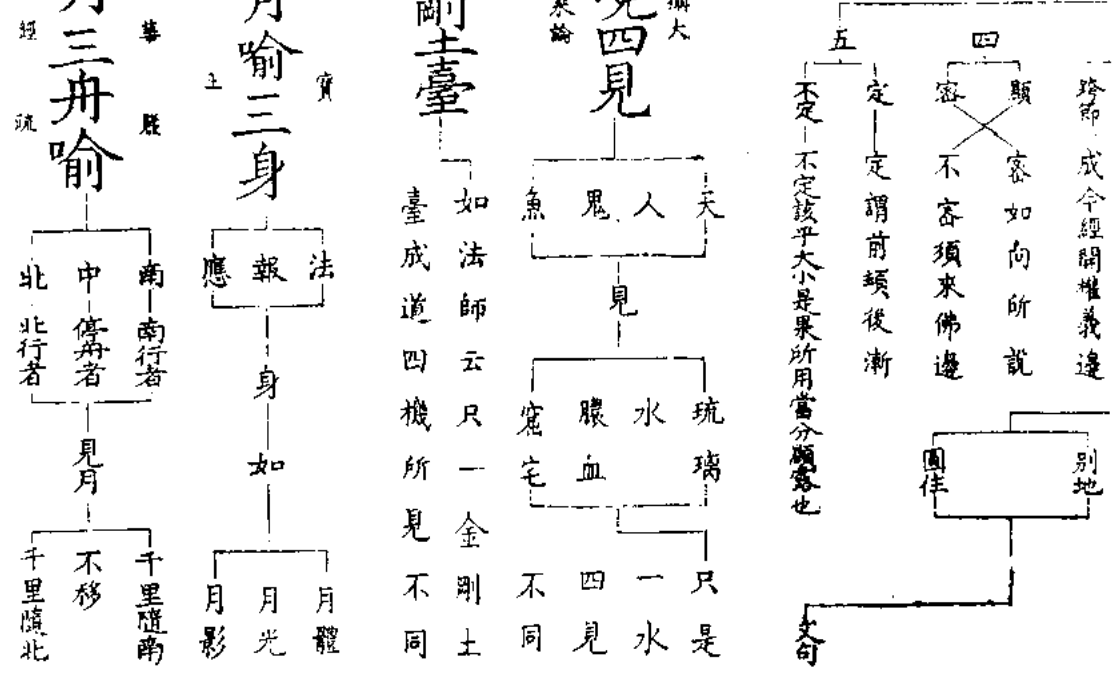 跨節
成今經開權義邊
別地
圓住
文句
四
顯
密
密如向所說
不密須來佛邊
五
定
不定
定謂前頓後漸
不定該乎大小是果所用當分顯露也
攝大
乘論
四見
天
人
鬼
魚
見
琉璃
水
膿血
窟宅
只是
一水
四見
不同
剛土臺
如法師云只一金剛土
臺成道四機所見不同
月喻三身
寶
王
法
報
應
身
如
月體
月光
月影
三舟喻
華嚴
經疏
南
中
北
南行者
停舟者
北行者
見月
千里隨南
不移
千里隨北